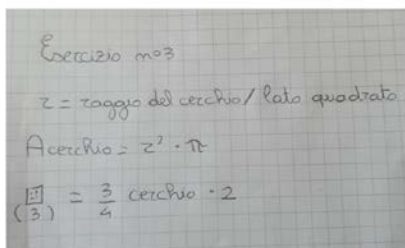 Esercizio n°3
r = raggio del cerchio / lato quadrato
A cerchio = r² · π
(3) = 3/4 cerchio · 2